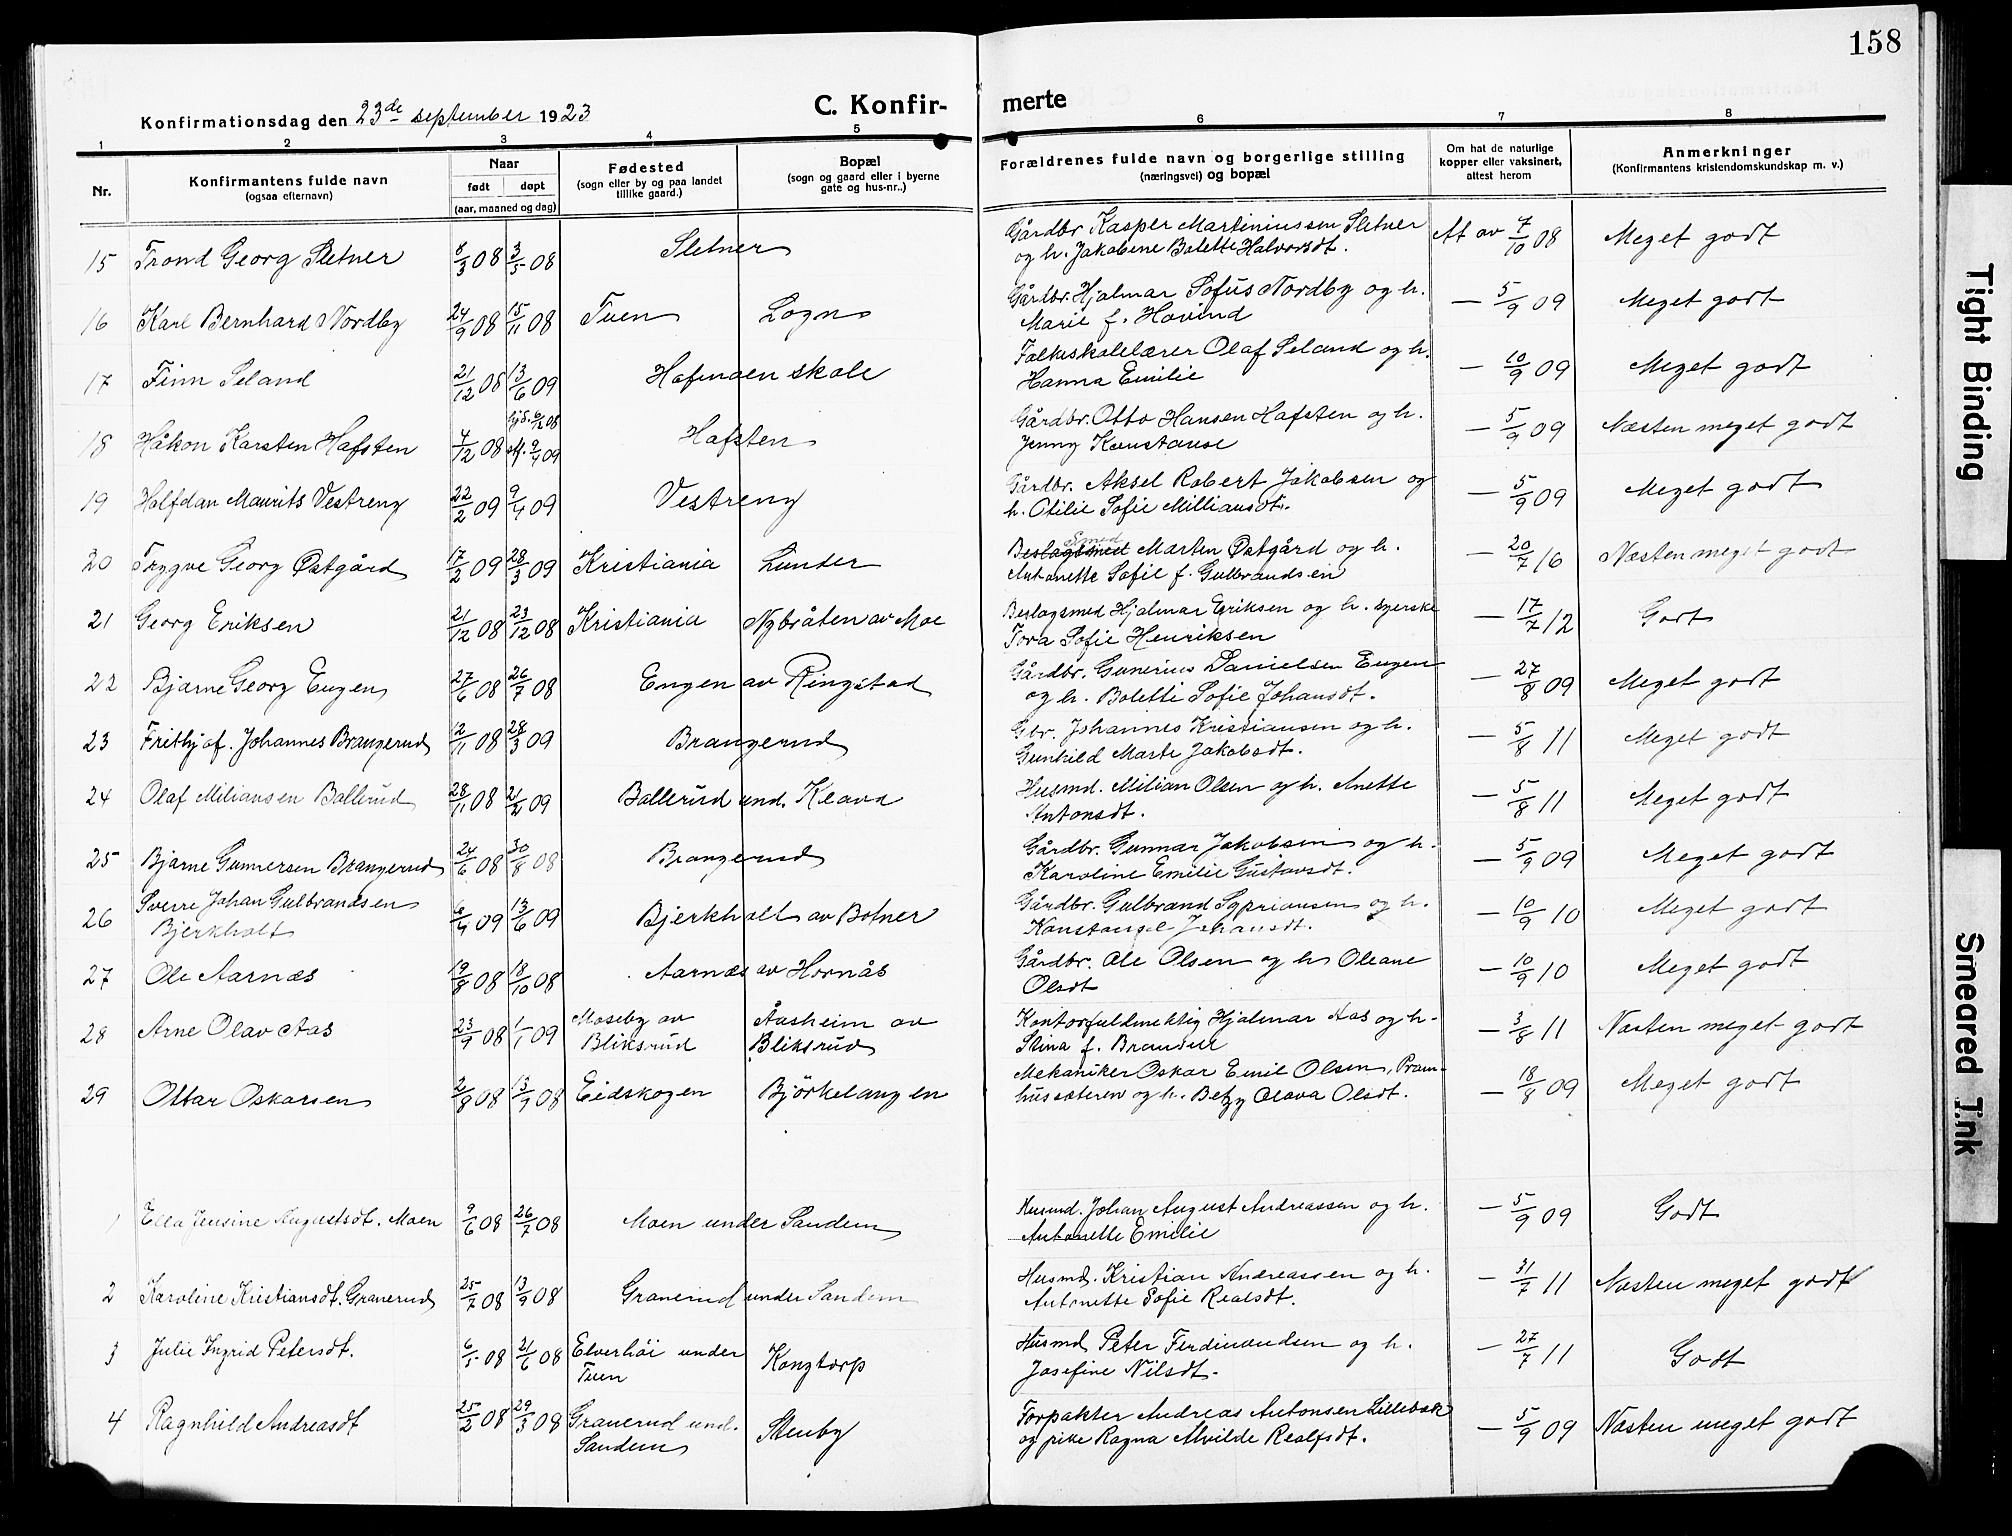 158
Konfirmationsdag den 23de september 1923
C. Konfir- merte
1 2 3 4 5 6 7 8
Nr.
Konfirmantens fulde navn
(ogsaa efternavn)
Naar
født døpt
(aar, maaned og dag)
Fødested
(sogn eller by og paa landet
tillike gaard.)
Bopæl
(sogn og gaard eller i byerne
gate og hus-nr..)
Forældrenes fulde navn og borgerlige stilling
(næringsvei) og bopæl
Om hat de naturlige
kopper eller vaksinert,
attest herom
Anmerkninger
(Konfirmantens kristendomskundskap m. v.)
15 Trond Georg Sletner 8/3 08 3/5 08 Sletner
Gårdbr Kasper Martiniussen Sletner
og h. Jakobine Bolette Halvorsdt.
At av 7/10 08 Meget godt
16 Karl Bernhard Nordby 24/9 08 15/11 08 Tuen Logn
Gårdbr. Hjalmar Sofus Nordby og h.
Marie f. Hovind
— 5/9 09 Meget godt
17 Finn Seland 21/12 08 13/6 09 Hofmoen skole
Folkeskolelærer Olaf Seland og h.
Hanna Emilie
— 10/9 09 Meget godt
18 Håkon Karsten Hafsten 4/12 08 hjd. 6/12 08 st. 9/4 09 Hafsten
Gårdbr. Otto Hansen Hafsten og h.
Jenny Konstanse
— 5/9 09 Næsten meget godt
19 Halfdan Maurits Vestreng 22/2 09 9/4 09 Vestreng
Gårdbr. Aksel Robert Jakobsen og
h. Otilie Sofie Milliansdt.
— 5/9 09 Meget godt
20 Trygve Georg Østgård 17/2 09 28/3 09 Kristiania Lunder
Smed
Beslagsmed Marten Østgård og h.
Antonette Sofie f. Gulbrandsen
— 20/7 16 Næsten meget godt
21 Georg Eriksen 21/12 08 23/12 08 Kristiania Nybråten av Moe
Beslagsmed Hjalmar Eriksen og h. syerske
Tora Sofie Henriksen
— 17/7 12 Godt
22 Bjarne Georg Engen 27/6 08 26/7 08 Engen av Ringstad
Gårdbr. Gunerius Danielsen Engen
og h. Bolette Sofie Johansdt.
— 27/8 09 Meget godt
23 Frithjof. Johannes Brangerud 12/11 08 28/3 09 Brangerud
Gbr. Johannes Kristiansen og h.
Gunhild Marte Jakobsdt.
— 5/8 11 Meget godt
24 Olaf Miliansen Bollerud 28/11 08 21/2 09 Bollerud und. Kraava
Husmd. Milian Olsen og h. Anette
Antonsdt.
— 5/8 11 Meget godt
25 Bjarne Gunnersen Brangerud 24/6 08 30/8 08 Brangerud
Gårdbr. Gunnar Jakobsen og h.
Karoline Emilie Gustavsdt.
— 5/9 09 Meget godt
26 Sverre Johan Gulbrandsen
Bjerkholt 6/4 09 13/6 09 Bjerkholt av Botner
Gårdbr. Gulbrand Sypriansen og h.
Konstanse Johansdt.
— 10/9 10 Meget godt
27 Ole Aarnæs 19/8 08 18/10 08 Aarnæs av Hornås
Gårdbr. Ole Olsen og h Oleane
Olsdt
— 10/9 10 Meget godt
28 Arne Olav Aas 23/9 08 1/1 09 Moseby av
Bliksrud Åasheim av
Bliksrud
Kontorfuldmektig Hjalmar Aas og h.
Stina f.
— 3/8 11 Næsten meget godt
29 Ottar Oskarsen 2/8 08 13/9 08 Eidskogen Björkelangen
Mekaniker Oskar Emil Olsen, Pram-
hussæteren og h. Betzy Olava Olsdt.
— 18/8 09 Meget godt
1 Ella Jensine Augustsdt. Moen 9/6 08 26/7 08 Moen under Sandem
Husmd. Johan August Andreassen og h.
Antonette Emilie
— 5/9 09 Godt
2 Karoline Kristiansdt. Granerud 25/7 08 13/9 08 Granerud under Sandem
Husmd. Kristian Andreassen og h.
Antonette Sofie Realfsdt.
— 31/7 11 Næsten meget godt
3 Julie Ingrid Petersdt. 6/5 08 21/6 08 Elverhöi under
Tuen Kongtorp
Husmd Peter Ferdinandsen og h.
Josefine Nilsdt.
— 27/7 11 Godt
4 Ragnhild Andreasdt 25/2 08 29/3 08 Granerud und.
Sandem Stenby
Forpakter Andreas Antonsen Lillebæk
og pike Ragna Alvilde Realfsdt.
— 5/9 09 Næsten meget godt
Tight Binding
Smeared Ink